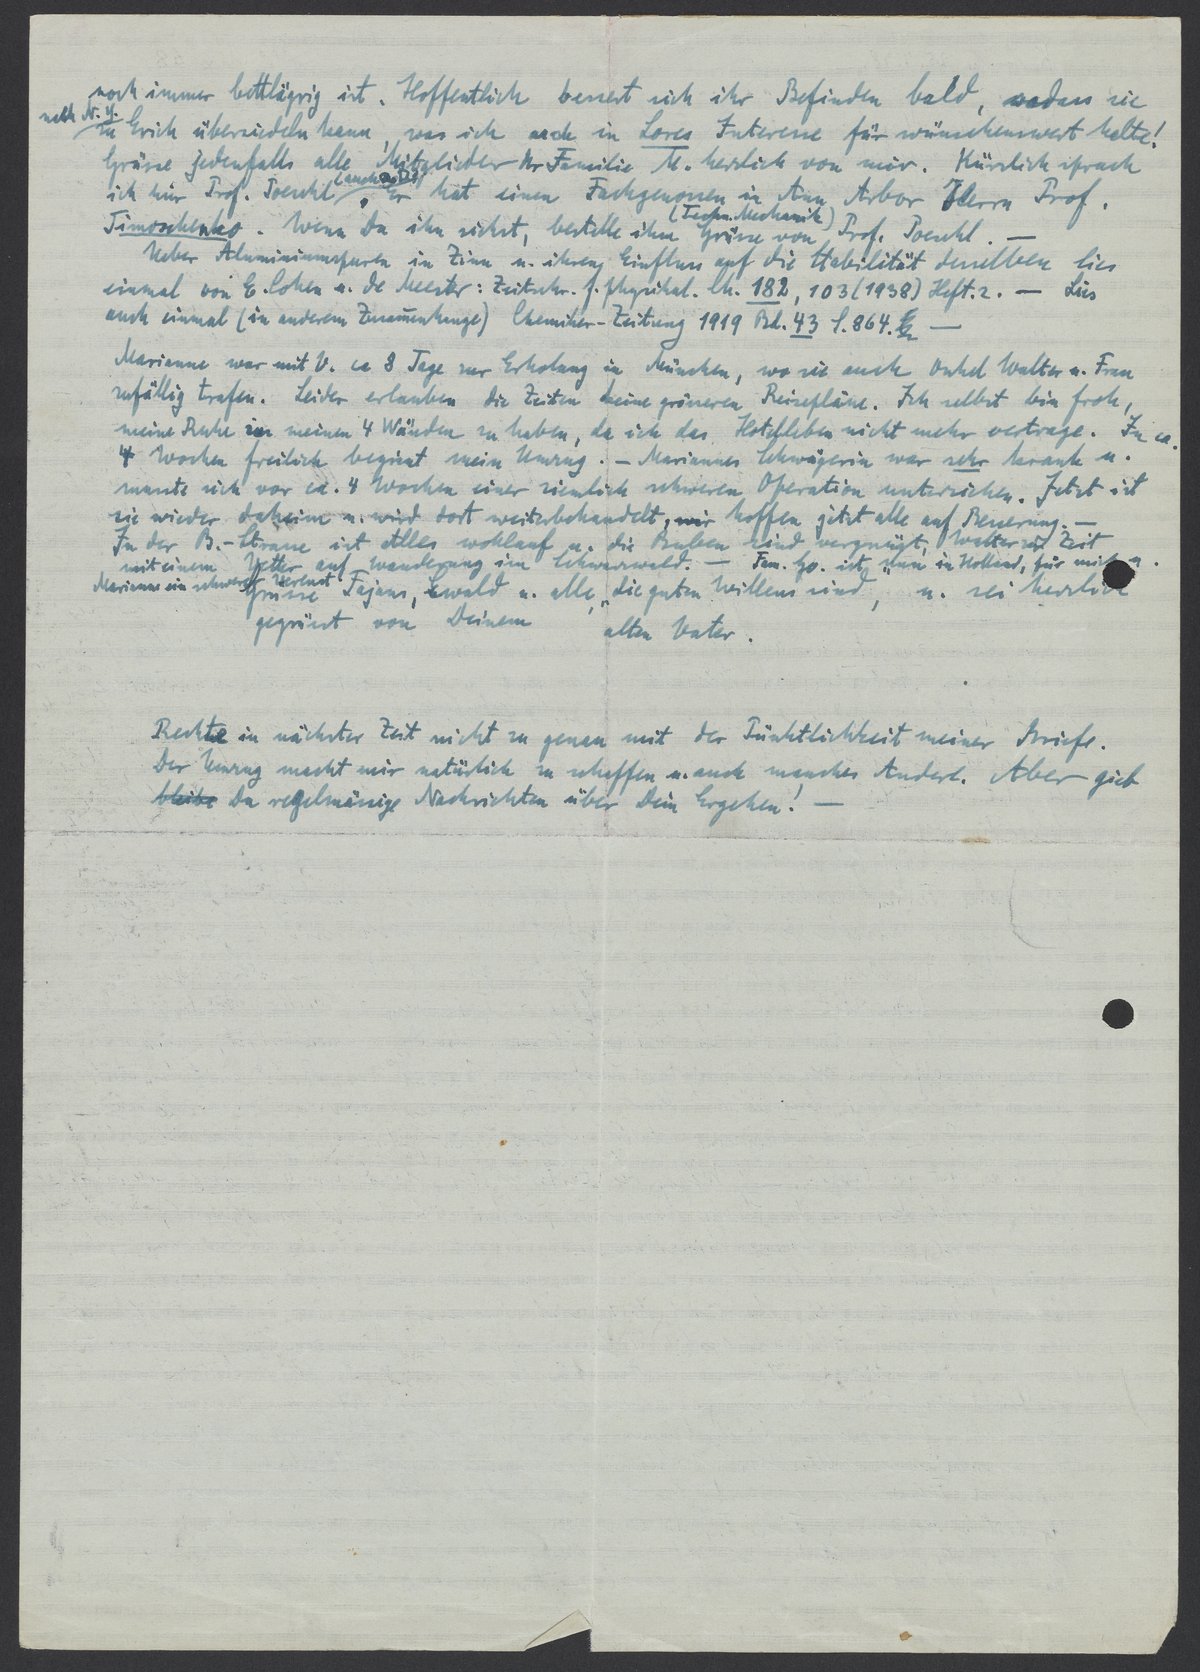 noch immer bettlägrig ist. Hoffentlich bessert sich ihr Befinden bald, sodass sie
nach N.Y.
zu Erich übersiedeln kann, was ich auch in Lores Interesse für wünschenswert halte!
Grüsse jedenfalls alle Mitglieder der Familie M. herzlich von mir. Kürzlich sprach
ich hier Prof. Poeschl (auch a.D.). Er hat einen Fachgenossen in Ann Arbor Herrn Prof.
(Techn. Mechanik)
Timoschenko. Wenn Du ihn siehst, bestelle ihm Grüsse von Prof. Poeschl. —
Ueber Aluminiumspuren in Zinn u. ihren Einfluss auf die Stabilität desselben lies
einmal von E. Cohen u. de Meester: Zeitschr. f. physikal. Ch. 182, 103 (1938) Heft. 2. — Lies
auch einmal (in anderem Zusam̅enhange) Chemiker-Zeitung 1919 Bd. 43 S. 864. —
Marianne war mit V. ca 8 Tage zur Erholung in München, wo sie auch Onkel Walter u. Frau
zufällig trafen. Leider erlauben die Zeiten keine grösseren Reisepläne. Ich selbst bin froh,
meine Ruhe in meinen 4 Wänden zu haben, da ich das Hotelleben nicht mehr vertrage. In ca.
4 Wochen freilich beginnt mein Umzug. — Mariannes Schwägerin war sehr krank u.
musste sich vor ca. 4 Wochen einer ziemlich schweren Operation unterziehen. Jetzt ist
sie wieder daheim u. wird dort weiterbehandelt, wir hoffen jetzt alle auf Besserung. —
In der B.-Strasse ist Alles wohlauf u. die Buben sind vergnügt, Walter zur Zeit
mit einem Vetter auf Wanderung im Schwarzwald. — Fam. Ho. ist nun in Holland, für mich u.
Marianne ein schwerer Verlust
Grüsse Fajans, Ewald u. alle, „die guten Willens sind", u. sei herzlich
gegrüsst von Deinem alten Vater.
Rechte in nächster Zeit nicht zu genau mit der Pünktlichkeit meiner Briefe.
Der Umzug macht mir natürlich zu schaffen u. auch manches Andere. Aber gieb
bleibe Du regelmässige Nachrichten über Dein Ergehen! —